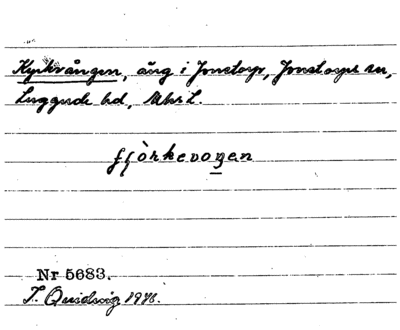 Kyrkvången, äng i Jonstorp, Jonstorps sn,
Luggude hd, Mhs l.
fjòrkevoŋen
Nr 5683.
T. Quidwig 1976.